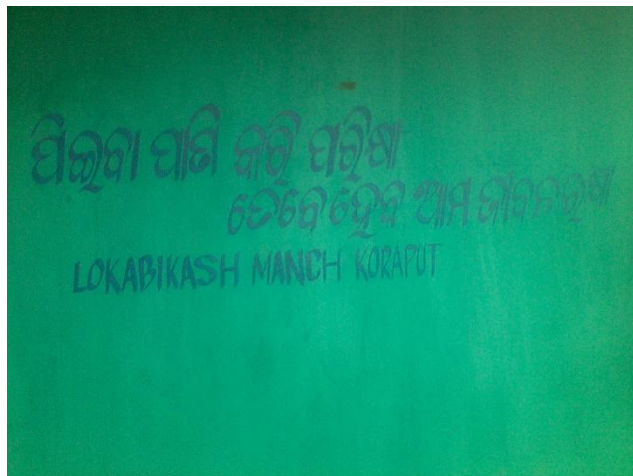 ପିଇବା ପାଣି କରି ପରିଷା
ତେବେ ହେବ ଆମ ଜୀବନ ରକ୍ଷା
LOKABIKASH MANCH KORAPUT